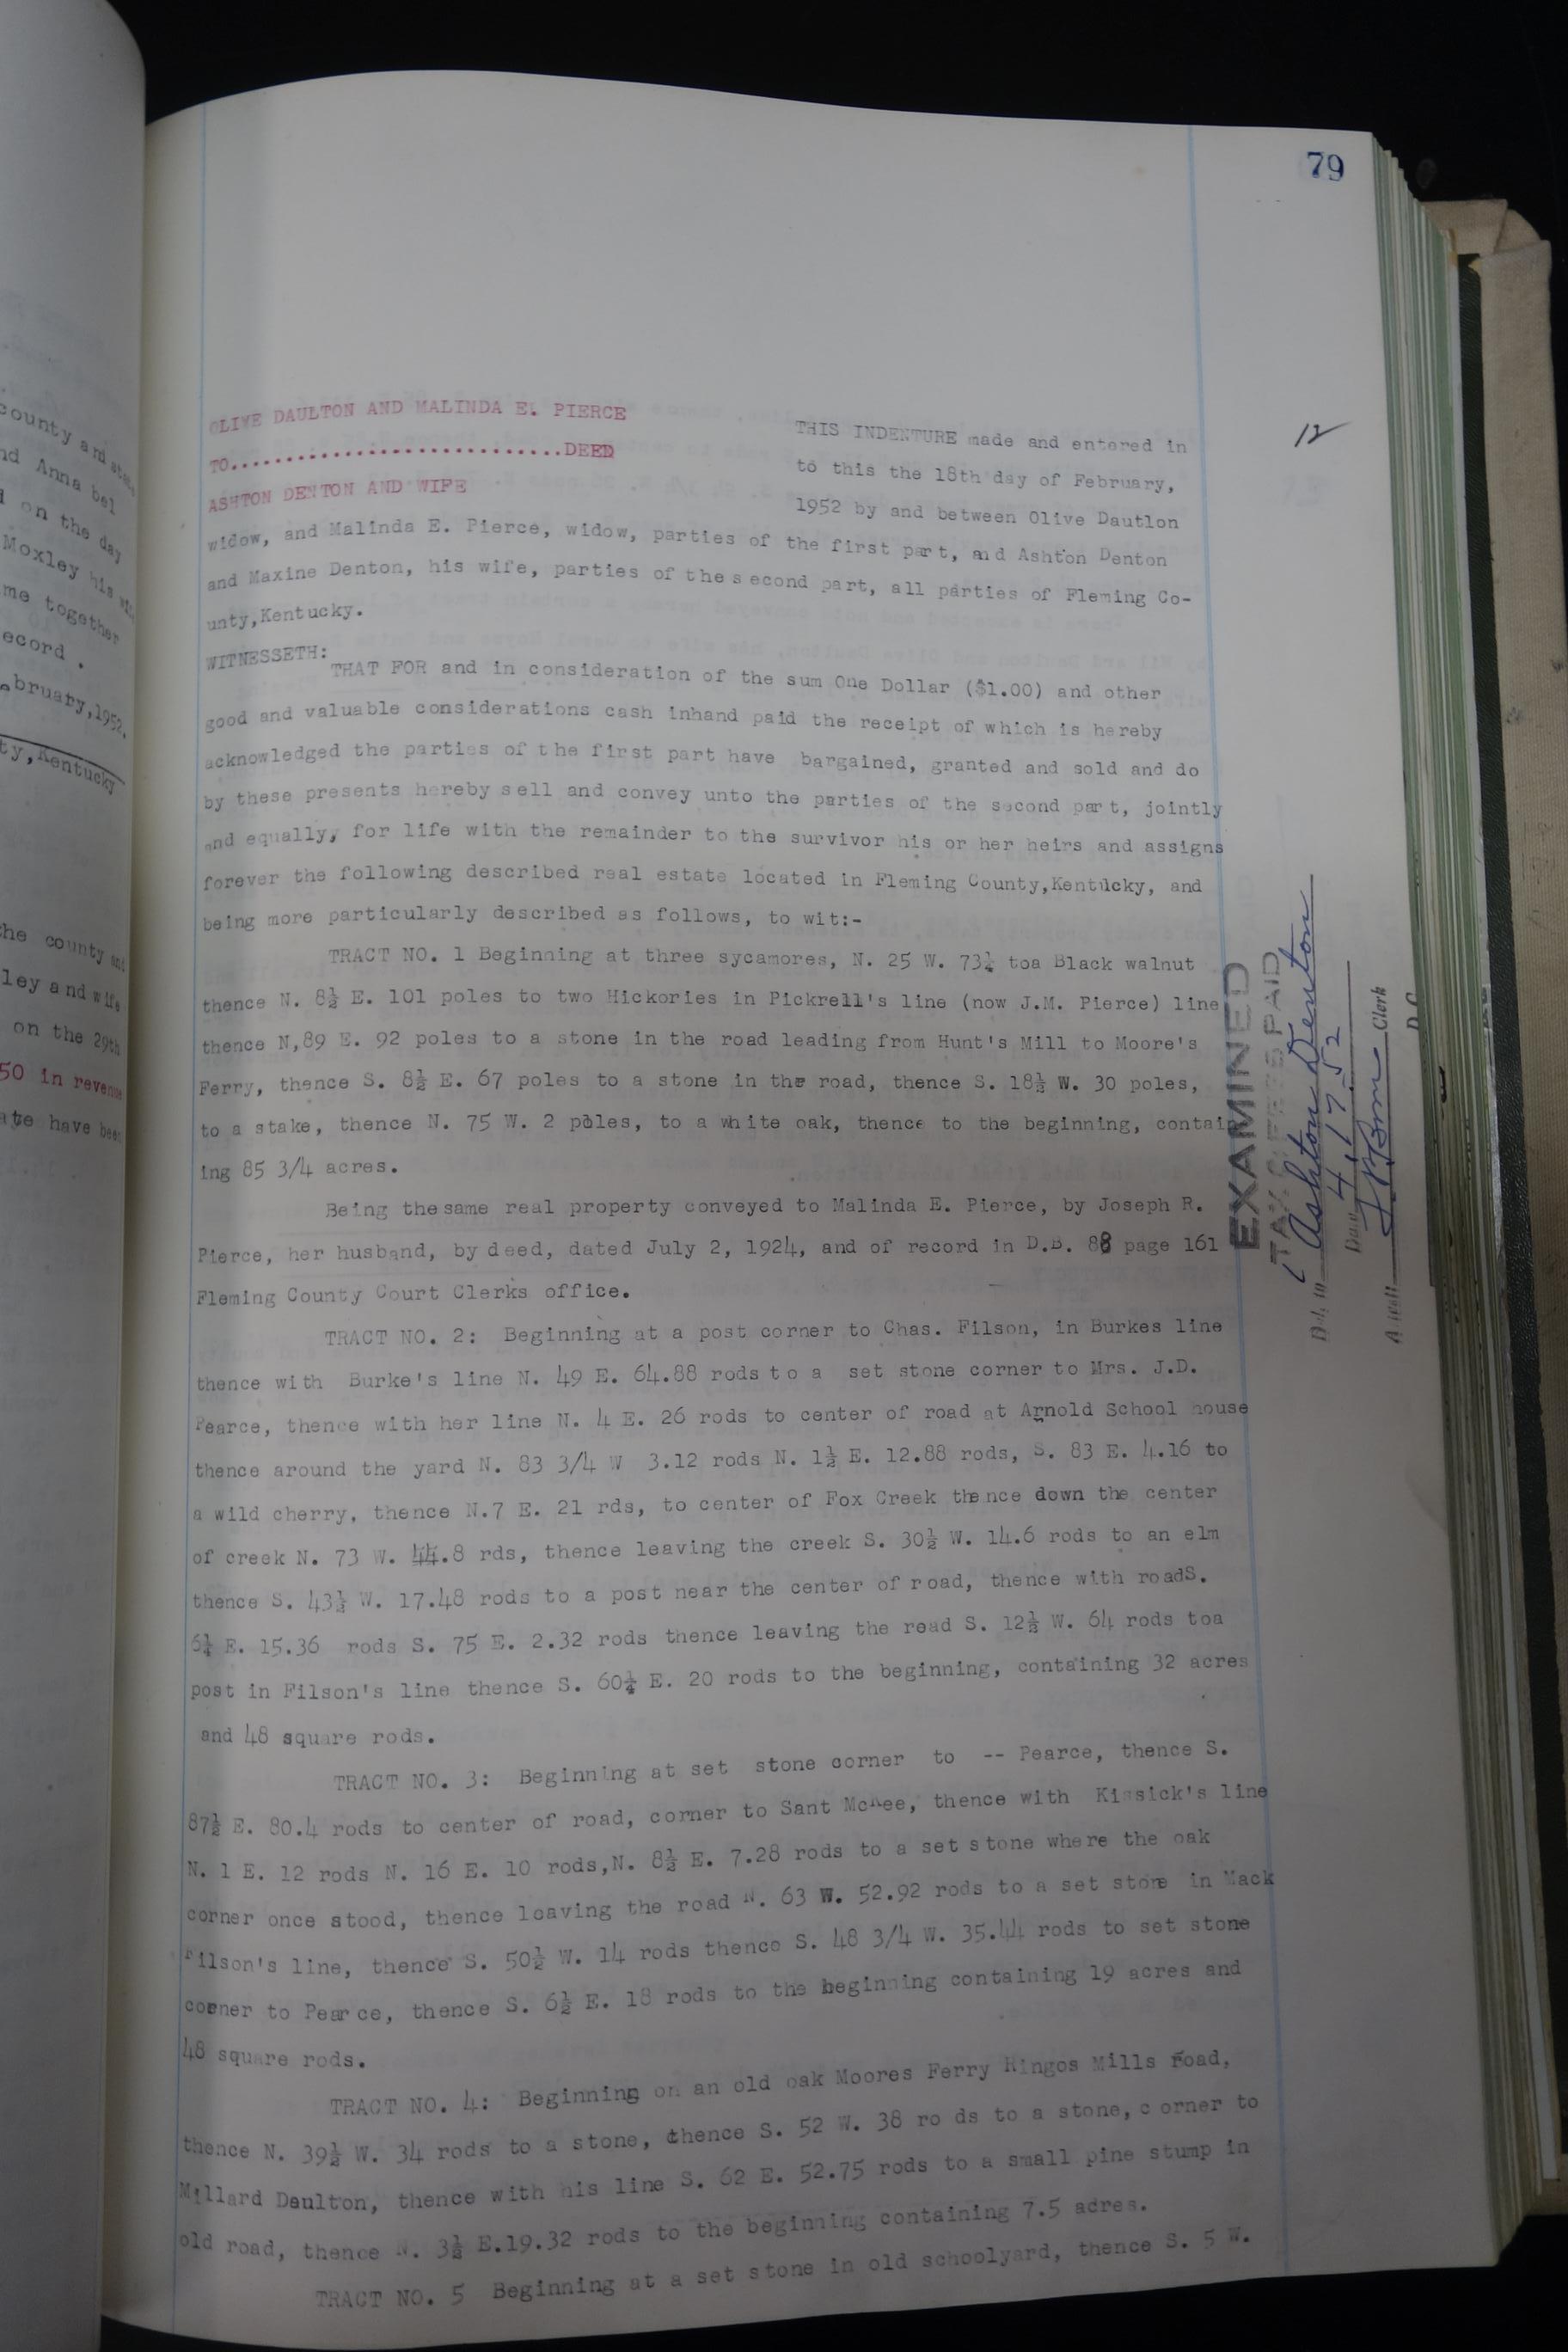 79
county and state
nd Anna bel
d on the day
Moxley his wife
me together
ecord .
bruary,1952.
ty,Kentucky
the county and
ley and wife
on the 29th
50 in revenue
ate have been
OLIVE DAULTON AND MALINDA E. PIERCE
TO..............................DEED
ASHTON DENTON AND WIFE
12
THIS INDENTURE made and entered in
to this the 18th day of February,
1952 by and between Olive Dautlon
widow, and Malinda E. Pierce, widow, parties of the first part, and Ashton Denton
and Maxine Denton, his wife, parties of the second part, all parties of Fleming Co-
unty,Kentucky.
WITNESSETH:
THAT FOR and in consideration of the sum One Dollar ($1.00) and other
good and valuable considerations cash inhand paid the receipt of which is hereby
acknowledged the parties of the first part have bargained, granted and sold and do
by these presents hereby sell and convey unto the parties of the second part, jointly
and equally, for life with the remainder to the survivor his or her heirs and assigns
forever the following described real estate located in Fleming County,Kentucky, and
being more particularly described as follows, to wit:-
TRACT NO. 1 Beginning at three sycamores, N. 25 W. 73¼ toa Black walnut
thence N. 8½ E. 101 poles to two Hickories in Pickrell's line (now J.M. Pierce) line
thence N,89 E. 92 poles to a stone in the road leading from Hunt's Mill to Moore's
Ferry, thence S. 8½ E. 67 poles to a stone in the road, thence S. 18½ W. 30 poles,
to a stake, thence N. 75 W. 2 poles, to a white oak, thence to the beginning, contain
ing 85 3/4 acres.
Being thesame real property conveyed to Malinda E. Pierce, by Joseph R.
Pierce, her husband, by deed, dated July 2, 1924, and of record in D.B. 88 page 161
Fleming County Court Clerks office.
TRACT NO. 2: Beginning at a post corner to Chas. Filson, in Burkes line
thence with Burke's line N. 49 E. 64.88 rods to a set stone corner to Mrs. J.D.
Pearce, thence with her line N. 4 E. 26 rods to center of road at Arnold School house
thence around the yard N. 83 3/4 W 3.12 rods N. 1½ E. 12.88 rods, S. 83 E. 4.16 to
a wild cherry, thence N.7 E. 21 rds, to center of Fox Creek thence down the center
of creek N. 73 W. 44.8 rds, thence leaving the creek S. 30½ W. 14.6 rods to an elm
thence S. 43½ W. 17.48 rods to a post near the center of road, thence with roadS.
6¼ E. 15.36 rods S. 75 E. 2.32 rods thence leaving the road S. 12½ W. 64 rods toa
post in Filson's line thence S. 60¼ E. 20 rods to the beginning, containing 32 acres
and 48 square rods.
TRACT NO. 3: Beginning at set stone corner to -- Pearce, thence S.
87½ E. 80.4 rods to center of road, corner to Sant McKee, thence with Kissick's line
N. 1 E. 12 rods N. 16 E. 10 rods,N. 8½ E. 7.28 rods to a set stone where the oak
corner once stood, thence leaving the road N. 63 W. 52.92 rods to a set stone in Mack
Filson's line, thence S. 50½ W. 14 rods thence S. 48 3/4 W. 35.44 rods to set stone
corner to Pearce, thence S. 6½ E. 18 rods to the beginning containing 19 acres and
48 square rods.
TRACT NO. 4: Beginning on an old oak Moores Ferry Ringos Mills road,
thence N. 39½ W. 34 rods to a stone, thence S. 52 W. 38 rods to a stone,corner to
Millard Daulton, thence with his line S. 62 E. 52.75 rods to a small pine stump in
old road, thence N. 3½ E.19.32 rods to the beginning containing 7.5 acres.
TRACT NO. 5 Beginning at a set stone in old schoolyard, thence S. 5 W.
EXAMINED
PAID
Ashton Denton
4, 17 52
Clerk
D.C.